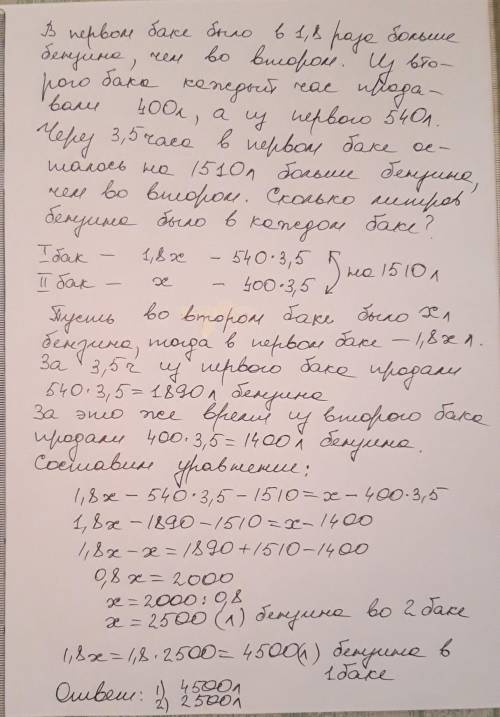 В первом баке было в 1,8 раза больше
бензина, чем во втором. Из вто-
рого бака каждый час прода-
вали 400л, а из первого 540л.
Через 3,5 часа в первом баке ос-
талось на 1510л больше бензина,
чем во втором. Сколько литров
бензина было в каждом баке?
I бак - 1,8х - 540·3,5
II бак - х - 400·3,5 на 1510л
Пусть во втором баке было х л
бензина, тогда в первом баке - 1,8х л.
За 3,5ч из первого бака продали
540·3,5=1890л бензина
За это же время из второго бака
продали 400·3,5=1400л бензина.
Составим уравнение:
1,8х-540·3,5-1510=х-400·3,5
1,8х-1890-1510=х-1400
1,8х-х=1890+1510-1400
0,8х=2000
х=2000:0,8
х=2500 (л) бензина во 2 баке
1,8х=1,8·2500=4500(л) бензина в
1 баке
Ответ: 1) 4500л
2) 2500л